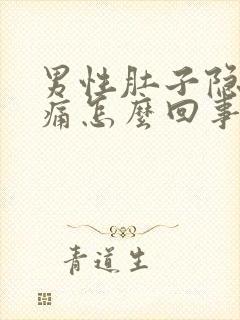 男性肚子隐
痛怎麽回事
青道生